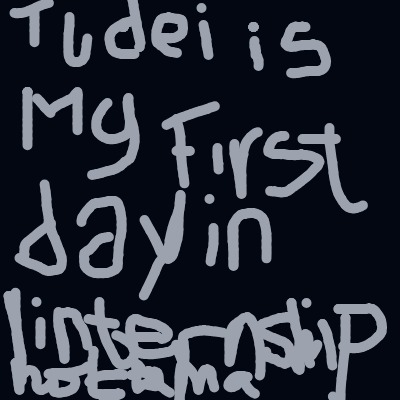 Tudei is
My First
day in
internship